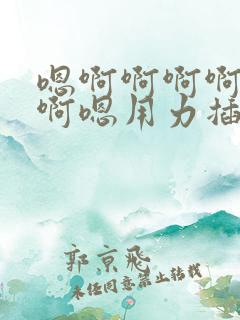 嗯啊啊啊啊
啊嗯用力插
郭京飛
未经同意禁止转载